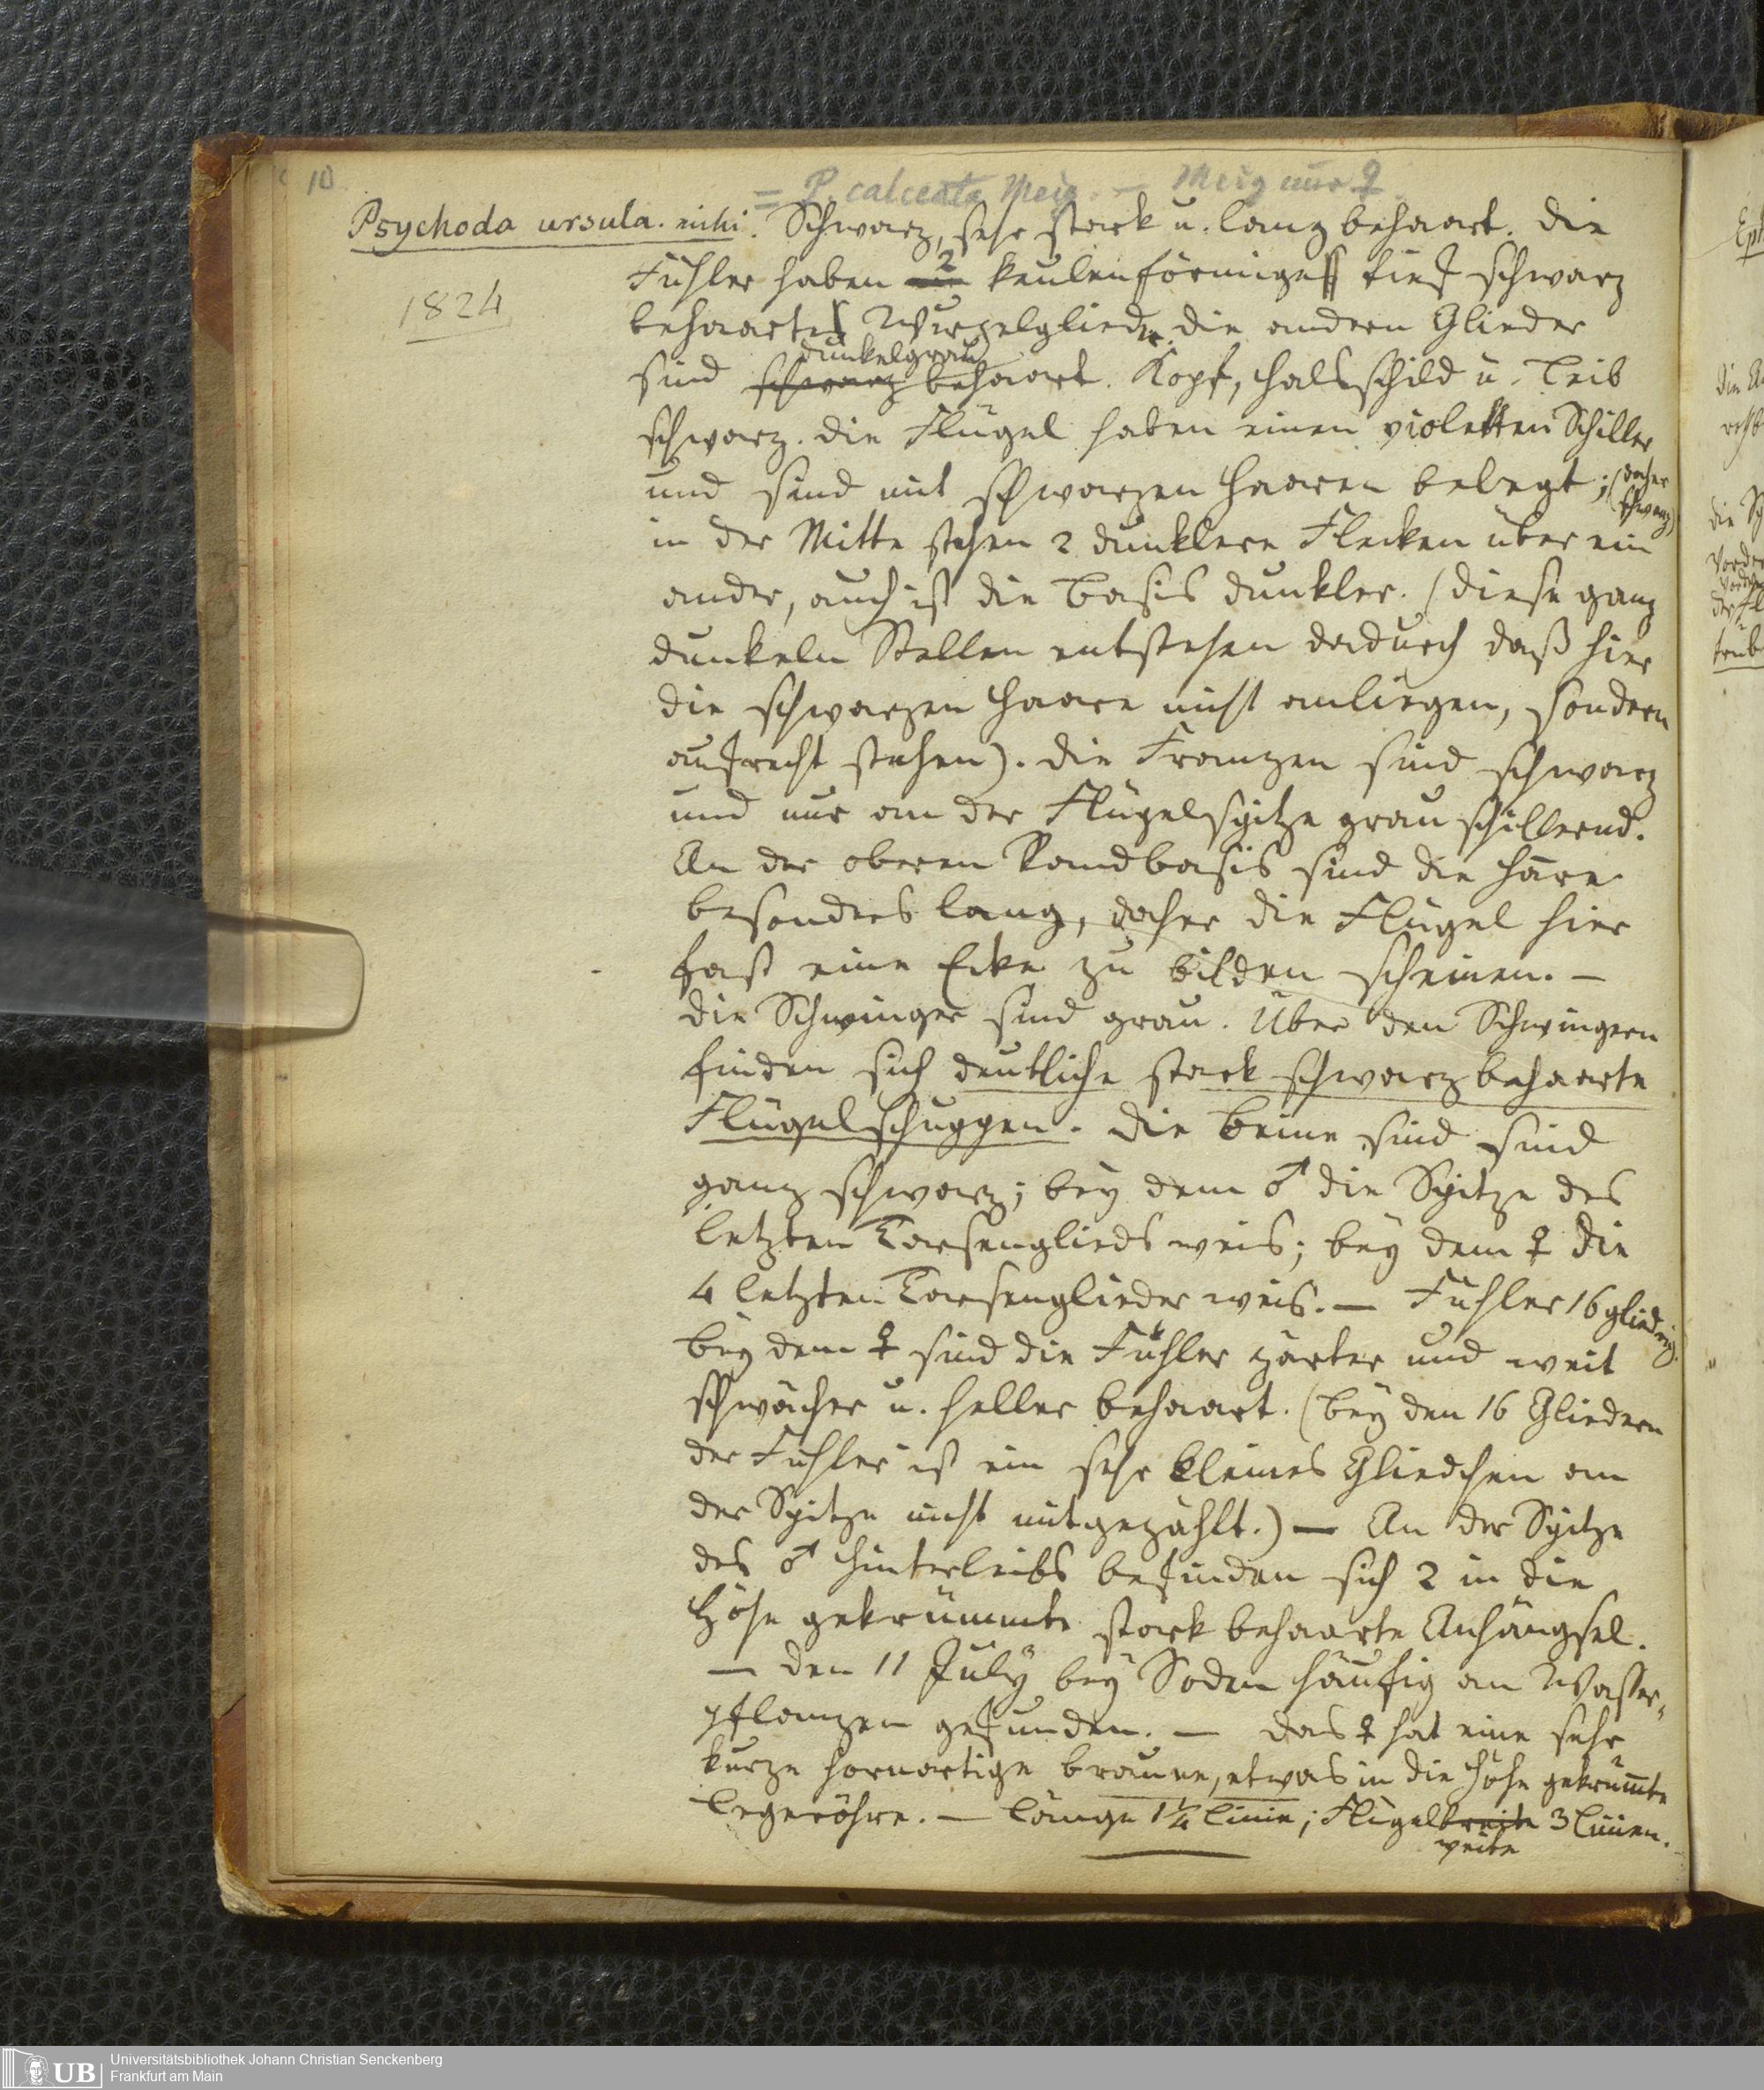 10
= P. calceata Meig. — Meig nur ♀.
Psychoda ursula. mihi. Schwarz, sehr stark u. lang behaart. Die
1824
Fühler haben 2 keulenförmige tief schwarz
behaarte Wurzelglieder. die andern Glieder
dunkelgrau
sind schwarz behaart. Kopf, Halsschild u. Leib
schwarz. die Flügel haben einen violetten Schiller
und sind mit schwarzen Haaren belegt; (daher
schwarz)
in der Mitte stehen 2 dunklere Flecken über ein
ander, auch ist die Basis dunkler. (diese ganz
dunkeln Stellen entstehen dadurch daß hier
die schwarzen Haare nicht anliegen, sondern
aufrecht stehen). die Franzen sind schwarz
und nur an der Flügelspitze grau schillernd.
An der oberen Randbasis sind die Häare
besonders lang, daher die Flügel hier
fast eine Ecke zu bilden scheinen. —
die Schwinger sind grau. Über den Schwingern
finden sich deutliche stark schwarz behaarte
Flügelschuppen. die Beine sind sind
ganz schwarz; bey dem ♂ die Spitze des
letzten Tarsenglieds weis; bey dem ♀ die
4 letzten Tarsenglieder weis. — Fühler 16gliedrig.
bey dem ♀ sind die Fühler zarter und weit
schwächer u. heller behaart. (bey den 16 Gliedern
der Fühler ist ein sehr kleines Gliedchen an
der Spitze nicht mitgezählt.) — An der Spitze
des ♂ Hinterleibs befinden sich 2 in die
Höhe gekrümmte stark behaarte Anhängsel.
— den 11 July bey Soden häufig an Wasser-
pflanzen gefunden. — das ♀ hat eine sehr
kurze hornartige braune, etwas in die Höhe gekrümte
Legeröhre. — Länge 1¼ Linie; Flügelbreite 3 Linien.
weite
Universitätsbibliothek Johann Christian Senckenberg
UB Frankfurt am Main